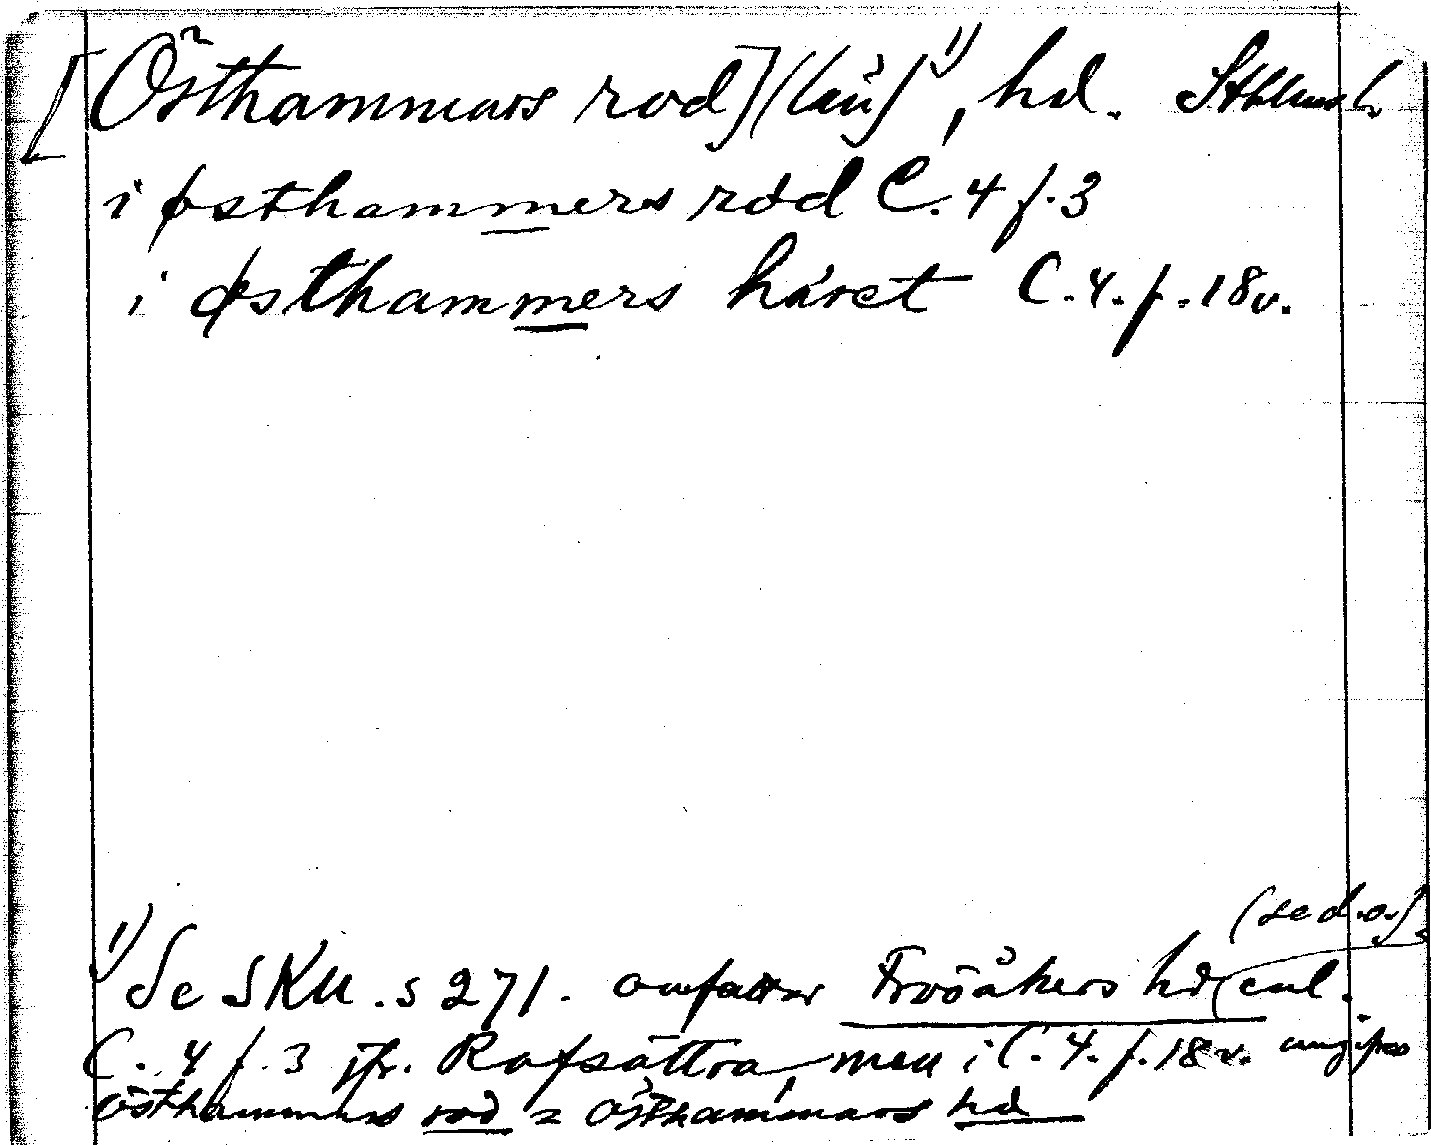 [Östhammars rod] (län) 1), hd. Sthlms l.
i østhammers rød C. 4 f. 3
i østhammers häret C. 4. f. 18v.
(se d.o.)
1) Se SRU. s 271. omfattar Frösåkers hd enl.
C. 4 f. 3 jfr. Rafsättra, men i C. 4. f. 18 v. angifves
östhammers rod = Östhammars hd